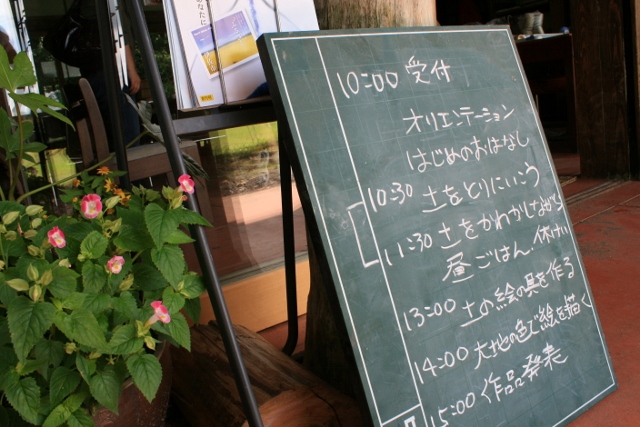 10:00 受付
オリエンテーション
はじめのおはなし
10:30 土をとりにいこう
11:30 土をかわかしながら
昼ごはん、休けい
13:00 土の絵の具を作る
14:00 大地の色で絵を描く
15:00 作品発表